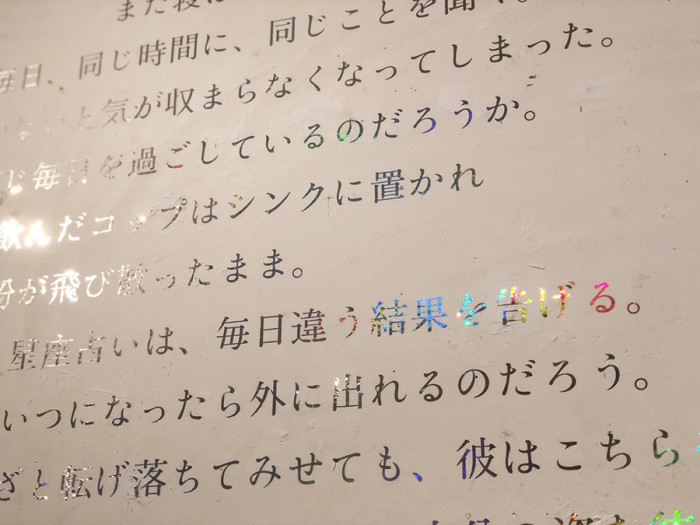 また
毎日、同じ時間に、同じことを聞く。
ないと気が収まらなくなってしまった。
じ毎日を過ごしているのだろうか。
飲んだコップはシンクに置かれ
粉が飛び散ったまま。
星座占いは、毎日違う結果を告げる。
いつになったら外に出れるのだろう。
ざと転げ落ちてみせても、彼はこちら